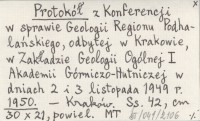 Protokół z Konferencji
w sprawie Geologii Regionu Podha-
lańskiego, odbytej w Krakowie,
w Zakładzie Geologii Ogólnej I
Akademii Górniczo-Hutniczej w
dniach 2 i 3 listopada 1949 r.
1950. — Kraków. Ss. 42, cm
30 x 21, powiel. MT